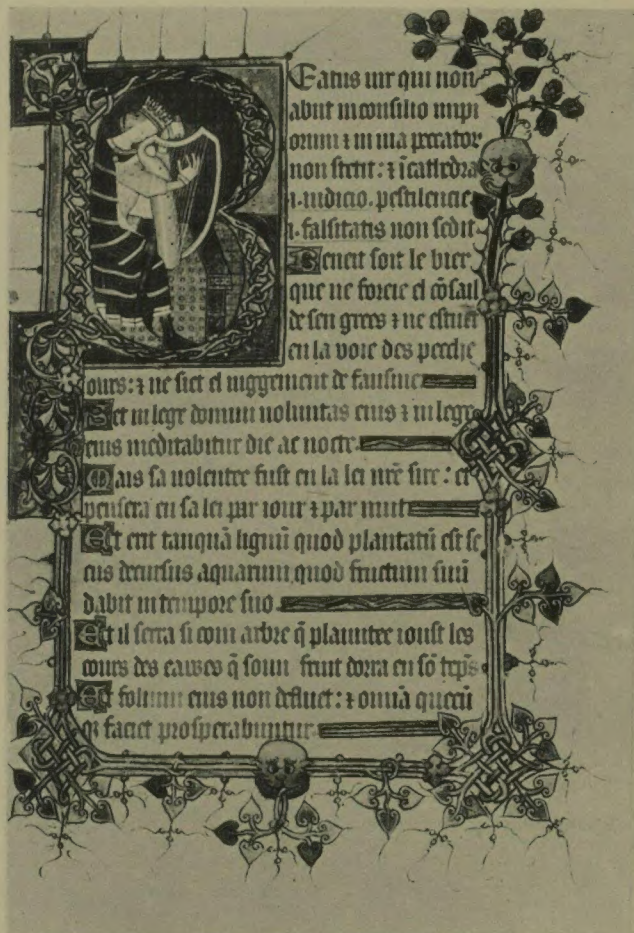 Beatus uir qui non
abiit in consilio impi
orum ⁊ in uia peccator
non stetit: ⁊ ī cathedra
.i. iudicio. pestilencie
.i. falsitatis non sedit.
Beneit soit le bier
que ne foreie el cōsail
de feu grees ⁊ ne estuet
en la uoie des peeche
ours: ⁊ ne siet el iuggement de fausine
Set in lege domini uoluntas eius ⁊ in lege
eius meditabitur die ac nocte
Mais sa uolentee fust en la lei nr̄e sire: et
pensera en sa lei par iour ⁊ par nuit
Et erit tanquā lignū quod plantatū est se
cus decursus aquarum quod fructum suū
dabit in tempore suo
Et il serra si com arbre q̄ plauntee ioust les
cours des eawes q̄ soun fruit dorra en sō tēps
Et folium eius non defluet: ⁊ omīa quecū
q; faciet prosperabuntur